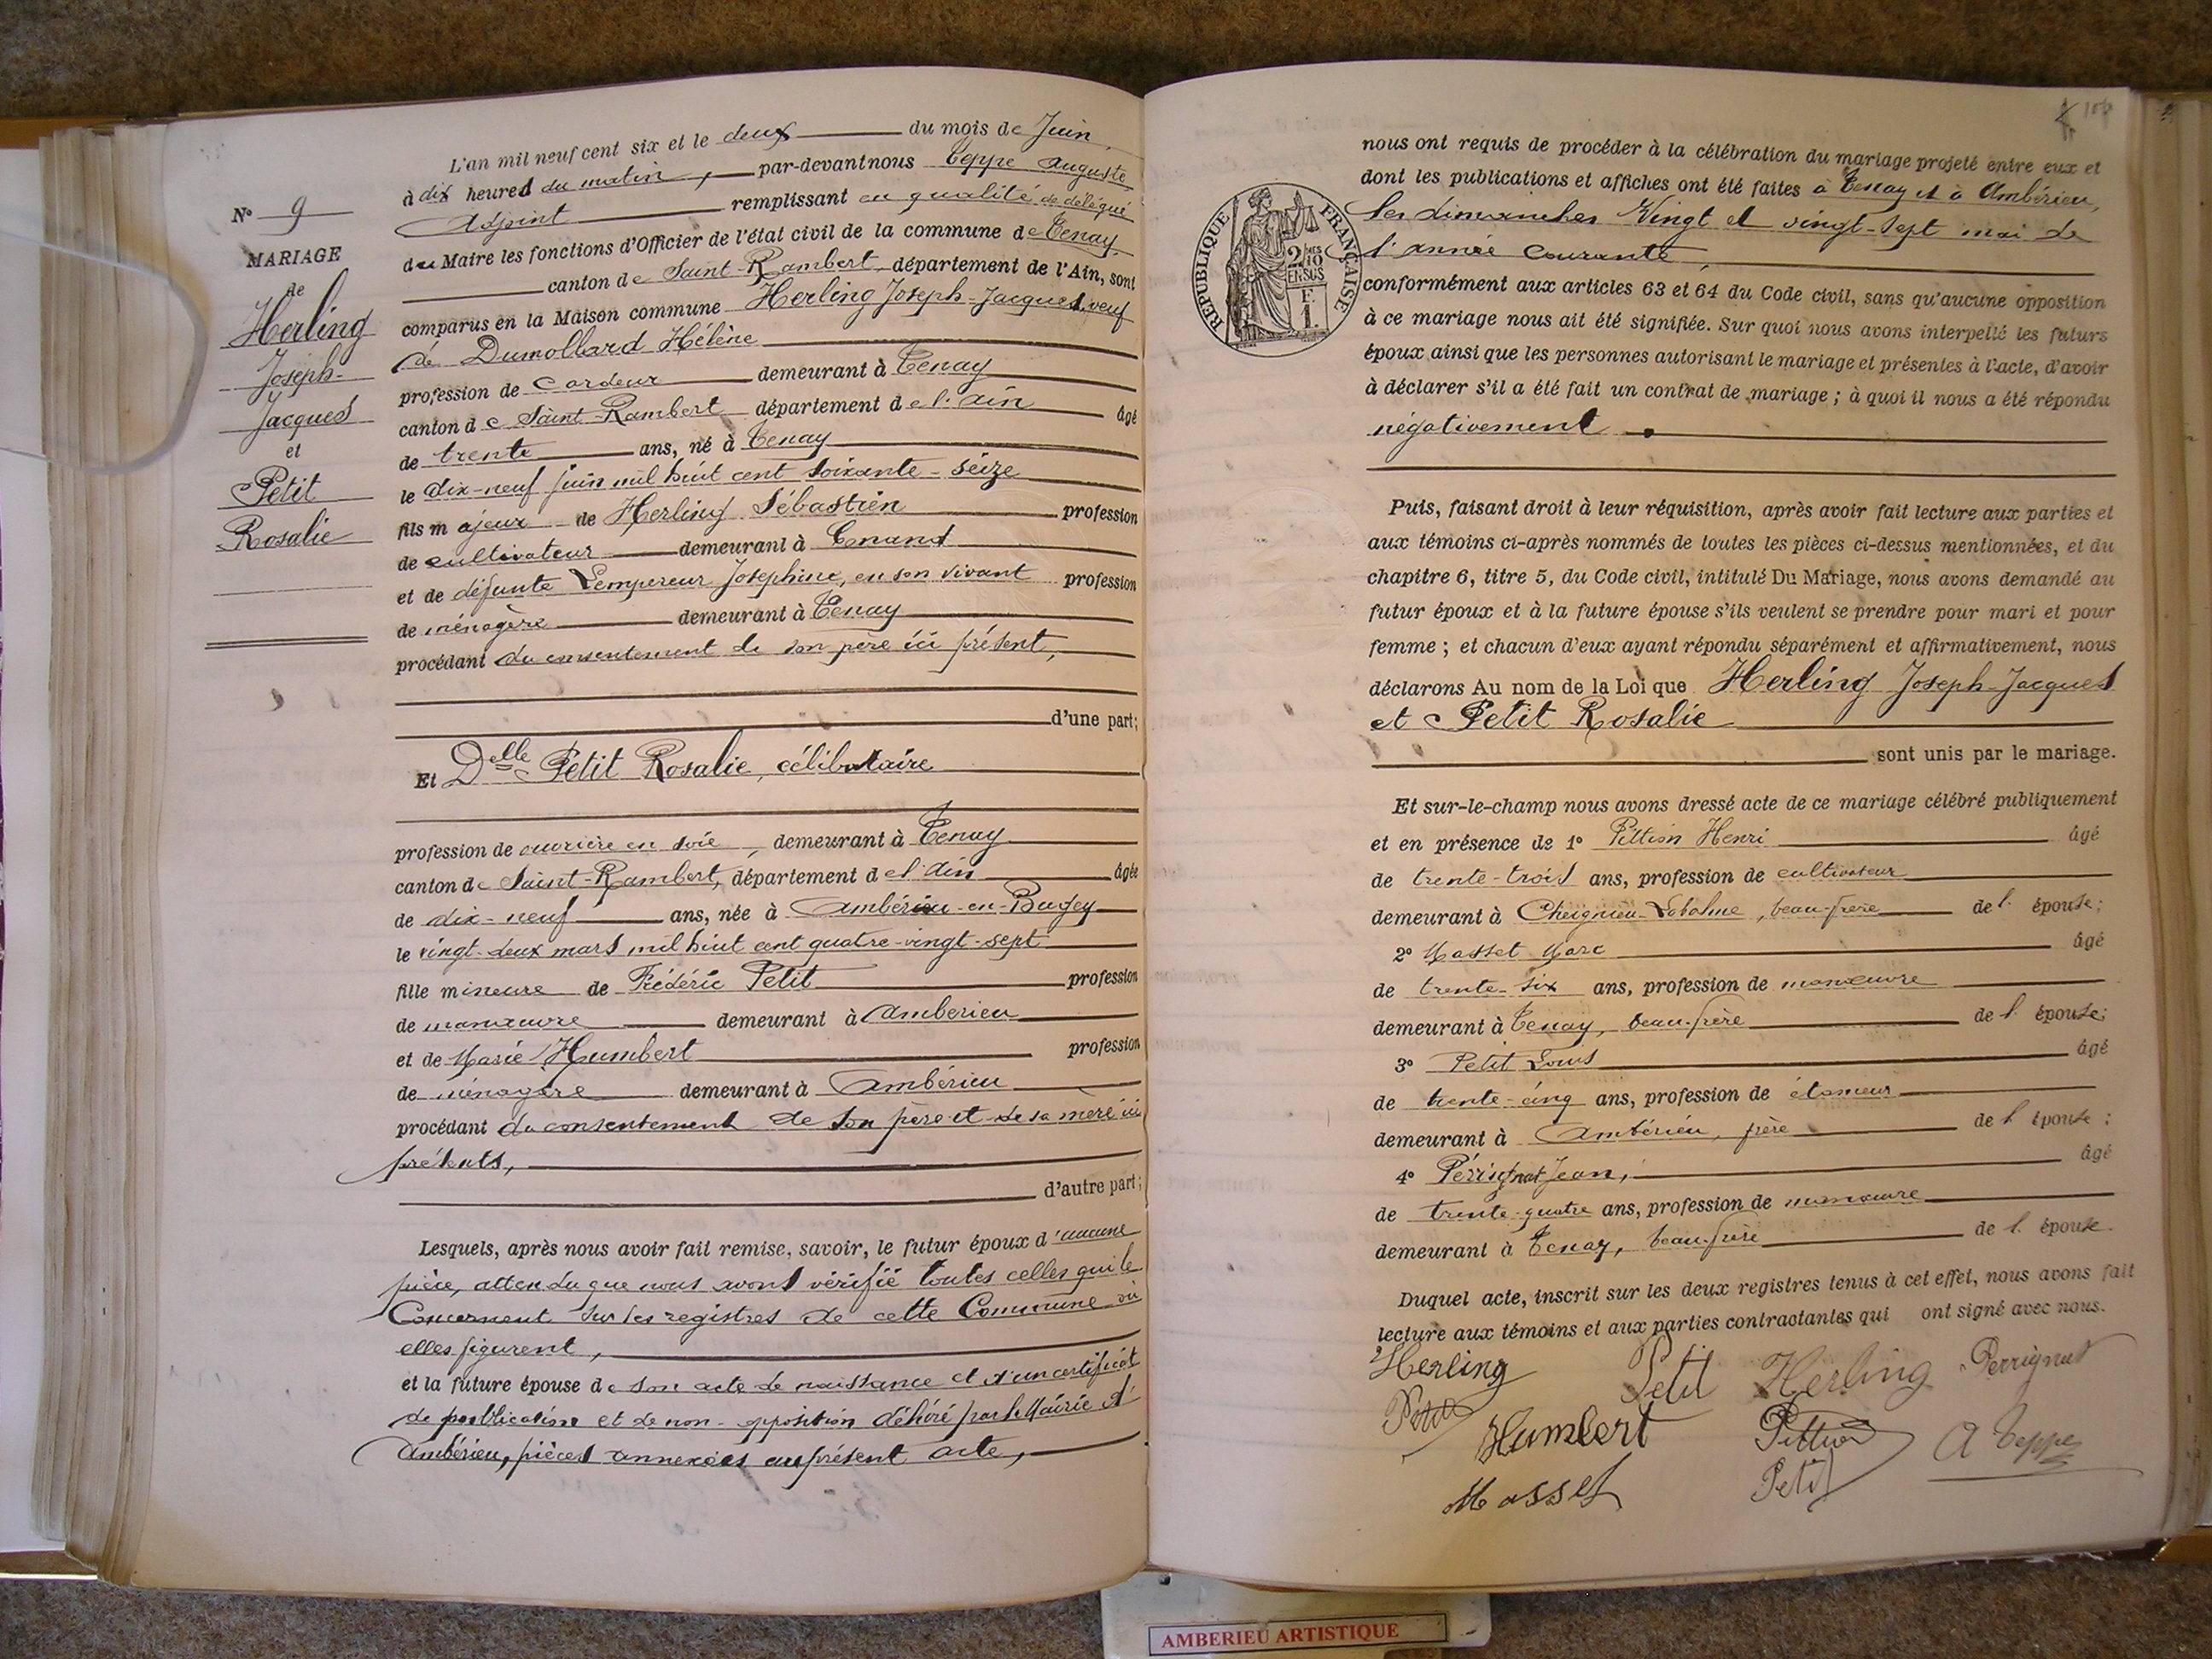 L'an mil neuf cent six et le deux du mois de Juin,
à dix heures du matin, par-devant nous Teppe Auguste
Adjoint remplissant en qualité de délégué
du Maire les fonctions d'Officier de l'état civil de la commune de Tenay,
canton de Saint-Rambert, département de l'Ain, sont
comparus en la Maison commune Herling Joseph-Jacques, veuf
de Dumollard Hélène
profession de cardeur demeurant à Tenay
canton de Saint-Rambert département de l'Ain âgé
de trente ans, né à Tenay
le dix-neuf juin mil huit cent soixante-seize
fils majeur de Herling Sébastien profession
de cultivateur demeurant à
et de défunte Lempereur Joséphine, en son vivant profession
de ménagère demeurant à Tenay
procédant du consentement de son père ici présent,
d'une part;
Et Delle Petit Rosalie, célibataire
profession de ouvrière en soie, demeurant à Tenay
canton de Saint-Rambert, département de l'Ain âgée
de dix-neuf ans, née à Ambérieu-en-Bugey
le vingt-deux mars mil huit cent quatre-vingt-sept
fille mineure de Frédéric Petit profession
de manœuvre demeurant à Ambérieu
et de Marie Humbert profession
de ménagère demeurant à Ambérieu
procédant du consentement de son père et de sa mère ici
présents,
d'autre part;
Lesquels, après nous avoir fait remise, savoir, le futur époux d'aucune
pièce, attendu que nous avons vérifié toutes celles qui le
Concernent sur les registres de cette Commune où
elles figurent,
et la future épouse de son acte de naissance et d'un certificat
de publication et de non-opposition délivré par la Mairie d'
Ambérieu, pièces annexées au présent acte,
N° 9
MARIAGE
de
Herling
Joseph-
Jacques
et
Petit
Rosalie
nous ont requis de procéder à la célébration du mariage projeté entre eux et
dont les publications et affiches ont été faites à Tenay et à Ambérieu,
les dimanches Vingt et vingt-sept mai de
l'année courante,
conformément aux articles 63 et 64 du Code civil, sans qu'aucune opposition
à ce mariage nous ait été signifiée. Sur quoi nous avons interpellé les futurs
époux ainsi que les personnes autorisant le mariage et présentes à l'acte, d'avoir
à déclarer s'il a été fait un contrat de mariage ; à quoi il nous a été répondu
négativement.
RÉPUBLIQUE FRANÇAISE
2/10 EN SUS
1 F
Puis, faisant droit à leur réquisition, après avoir fait lecture aux parties et
aux témoins ci-après nommés de toutes les pièces ci-dessus mentionnées, et du
chapitre 6, titre 5, du Code civil, intitulé Du Mariage, nous avons demandé au
futur époux et à la future épouse s'ils veulent se prendre pour mari et pour
femme ; et chacun d'eux ayant répondu séparément et affirmativement, nous
déclarons Au nom de la Loi que Herling Joseph-Jacques
et Petit Rosalie
sont unis par le mariage.
Et sur-le-champ nous avons dressé acte de ce mariage célébré publiquement
et en présence de 1° Pittion Henri âgé
de trente-trois ans, profession de cultivateur
demeurant à Cheignieu-Labalme, beau-frère de l'épouse;
2° Masset Marc âgé
de trente-six ans, profession de manœuvre
demeurant à Tenay, beau-frère de l'épouse;
3° Petit Louis âgé
de trente-cinq ans, profession de étameur
demeurant à Ambérieu, frère de l'épouse;
4° Perrignat Jean, âgé
de trente-quatre ans, profession de manœuvre
demeurant à Tenay, beau-frère de l'épouse.
Duquel acte, inscrit sur les deux registres tenus à cet effet, nous avons fait
lecture aux témoins et aux parties contractantes qui ont signé avec nous.
Herling Petit Herling Perrignat
Petit Humbert Pittion A Teppe
Masset Petit
AMBERIEU ARTISTIQUE